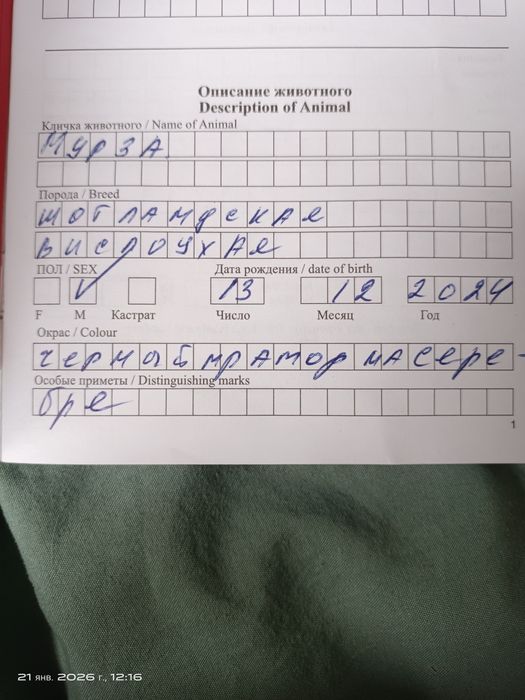 Описание животного
Description of Animal
Кличка животного / Name of Animal
МУРЗА
Порода / Breed
шотландская
вислоухая
ПОЛ / SEX
Дата рождения / date of birth
13 12 2024
F М Кастрат Число Месяц Год
Окрас / Colour
черный мрамор на сере-
Особые приметы / Distinguishing marks
бре
1
21 янв. 2026 г., 12:16